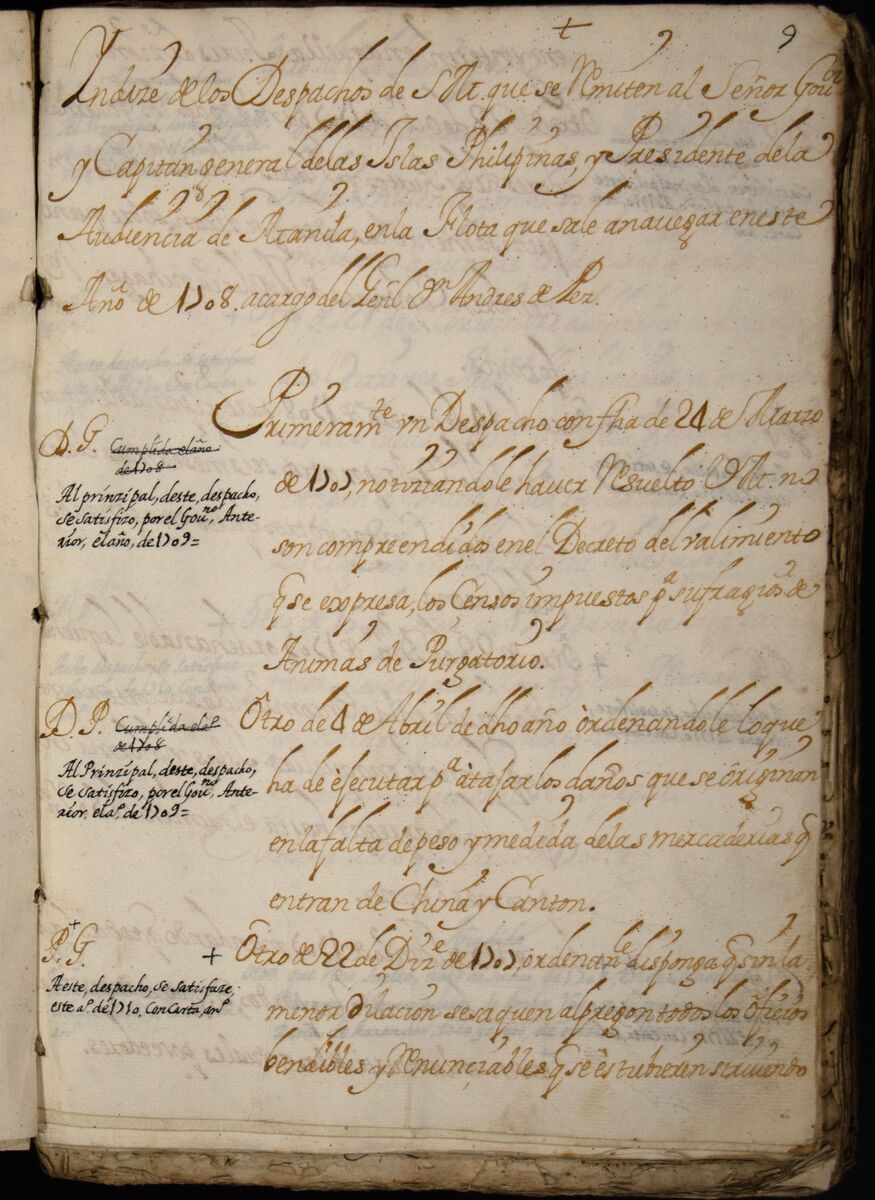 +
9
Yndize de los Despachos de S.M. que se Remiten al Señor Gov.or
y Capitan general de las Islas Philipinas, y Presidente de la
Audiencia de Manila, en la Flota que sale a navegar en este
Año de 1708. a cargo del Genl. Dn. Andres de Pez.
Primeramte. vn Despacho con fha de 24 de Marzo
de 1707, noticiandole haver Resuelto S.M. no
son compreendidos en el Decreto del valimiento
q se expresa, los Censos impuestos pa. sufragios de
Animas de Purgatorio.
D. G. Cumplida el año
de 1708
Al prinzipal, deste, despacho,
se satisfizo, por el Gouno. Ante-
rior, el año, de 1709=
Otro de 4 de Abril de dho año òrdenandole lo que
ha de èjecutar pa. àtajar los daños que se òriginan
en la falta de peso y medida de las mercaderias q
entran de China y Canton.
D. P. Cumplida el ao.
de 1708
Al Prinzipal, deste, despacho,
se satisfizo, por el Gouno. Ante-
rior, el ao. de 1709=
+ Otro de 22 de Dize. de 1707, òrdenanle. disponga q sin la
menor dilacion se saquen al pregon todos los òficios
bendibles y Renunçiables q se èstubieren siruiendo
+
P. G.
A este, despacho, se satisfaze,
este ao. de 1710. Con Carta, no.